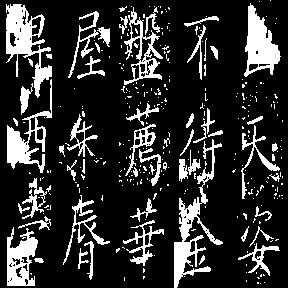 出天姿
不待金
盤薦華
屋朱唇
得酒暈